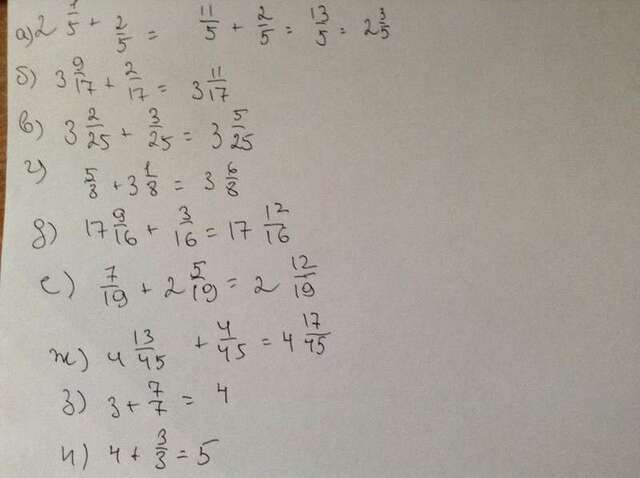 а) 2 1/5 + 2/5 = 11/5 + 2/5 = 13/5 = 2 3/5
б) 3 9/17 + 2/17 = 3 11/17
в) 3 2/25 + 3/25 = 3 5/25
г) 5/8 + 3 1/8 = 3 6/8
д) 17 9/16 + 3/16 = 17 12/16
е) 7/19 + 2 5/19 = 2 12/19
ж) 4 13/45 + 4/45 = 4 17/45
з) 3 + 7/7 = 4
и) 4 + 3/3 = 5